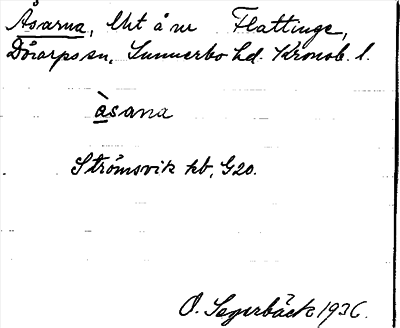 Åsarna, Utt å nr Flattinge,
Dörarps sn, Sunnerbo hd. Kronob. l.
àsana
Strömsvik kb, G20.
O. Segerbäck 1936.